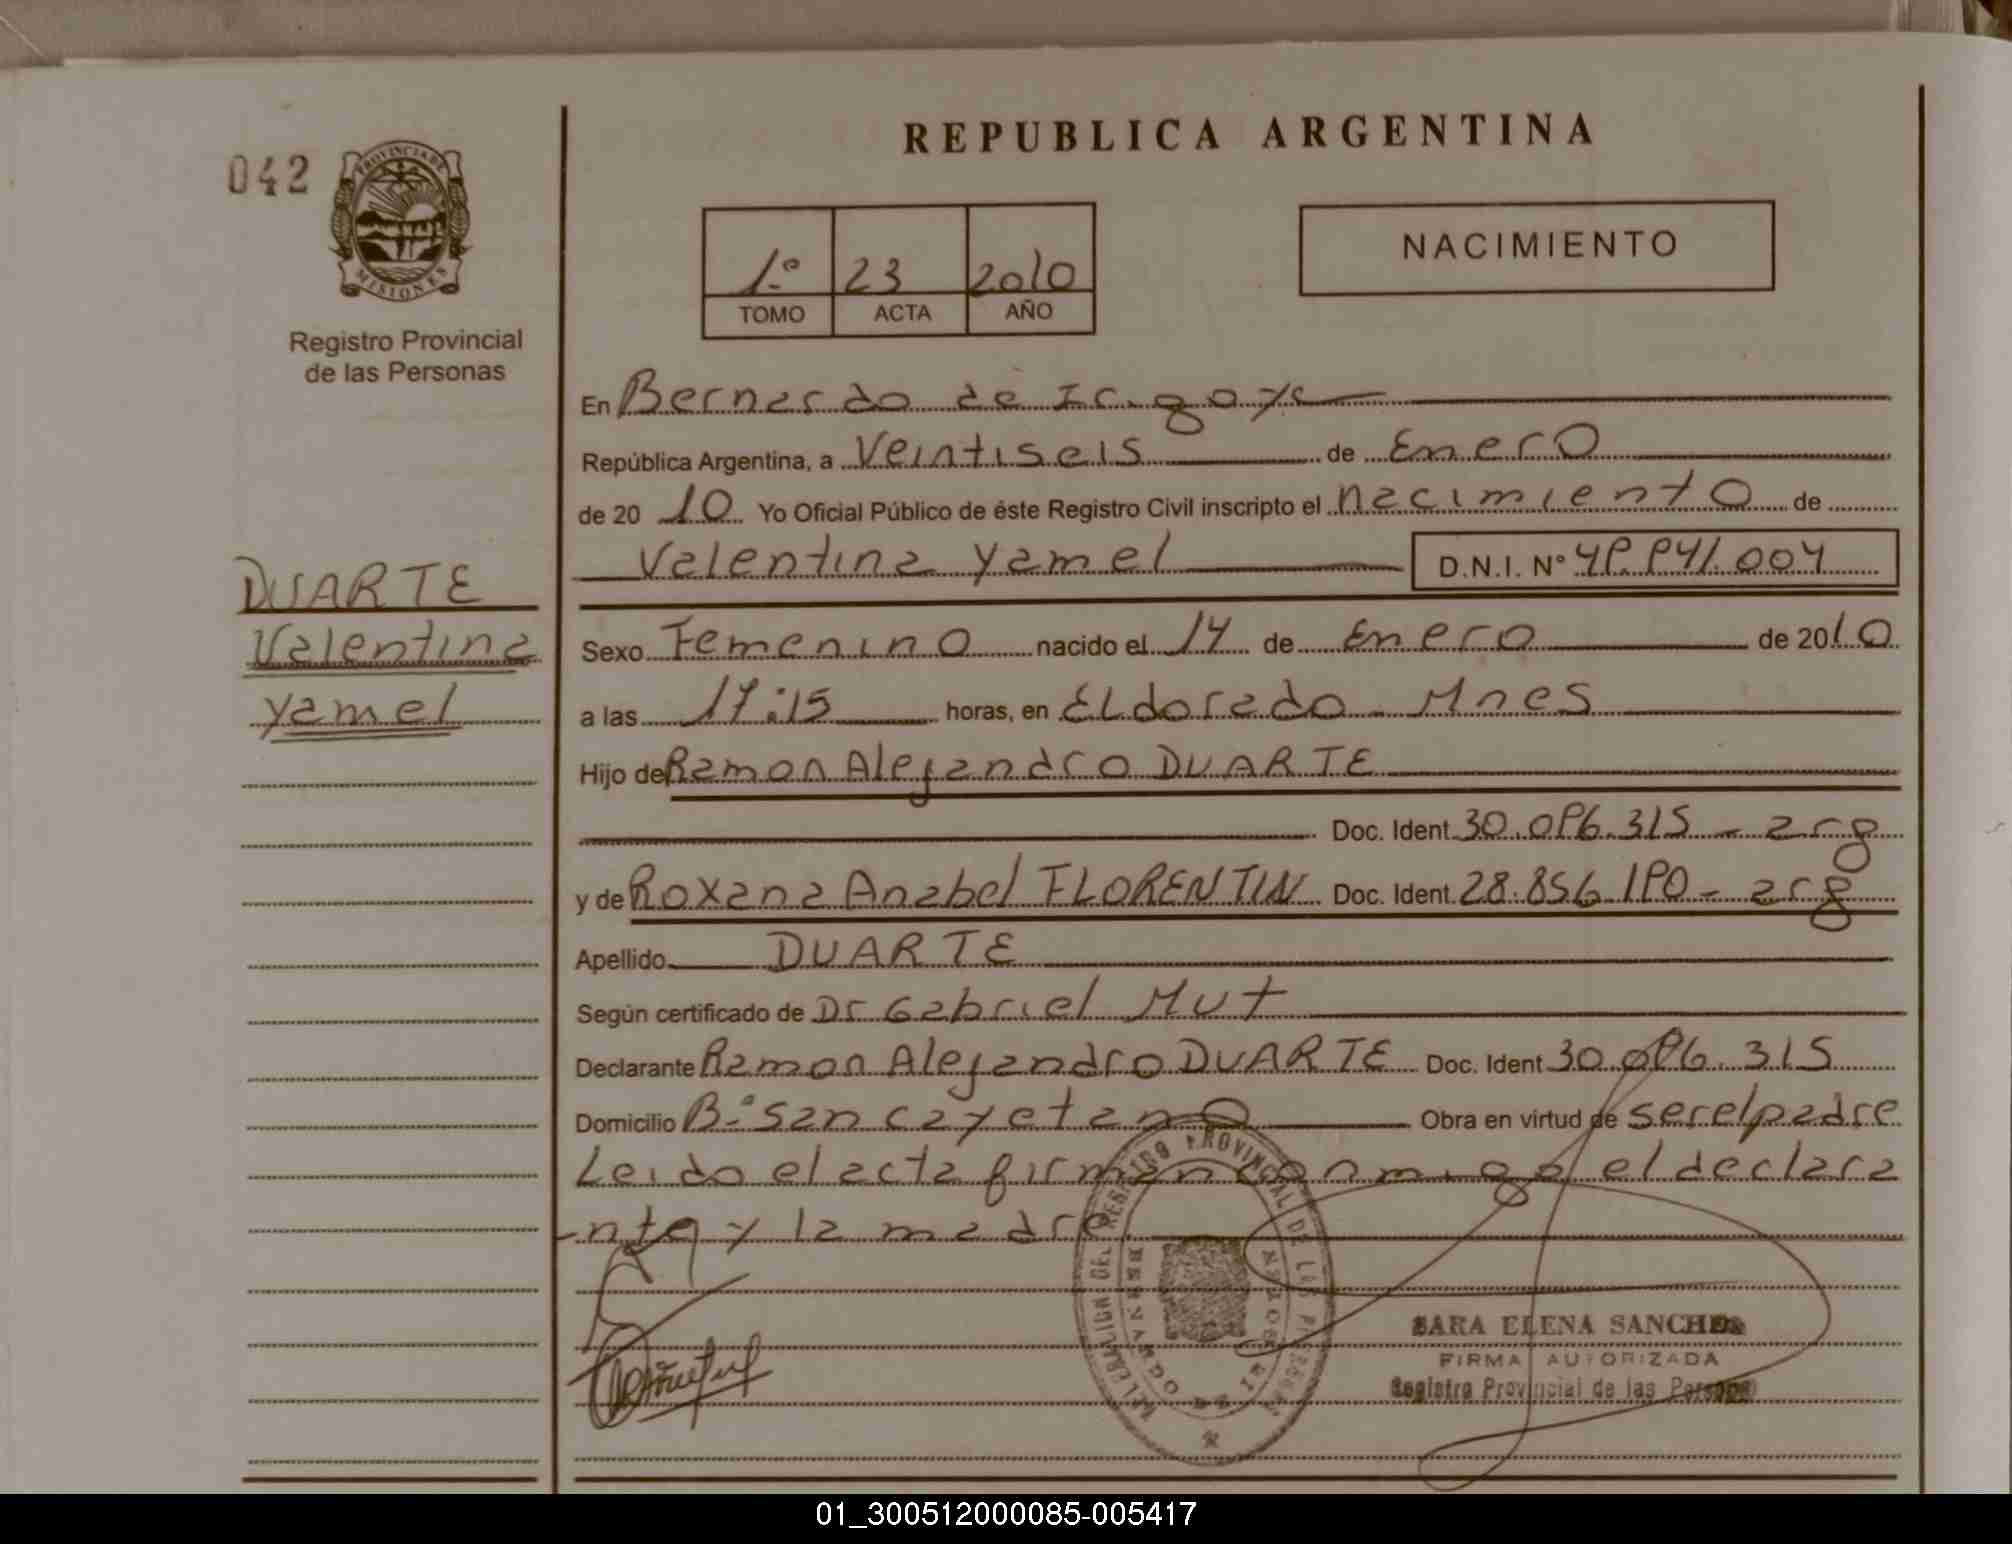 REPUBLICA ARGENTINA
042
PROVINCIA DE
MISIONES
Registro Provincial
de las Personas
1.º 23 2010
TOMO ACTA AÑO
NACIMIENTO
En Bernardo de Irigoye
República Argentina, a Veintiseis de Enero
de 20 10 Yo Oficial Público de éste Registro Civil inscripto el nacimiento de
Valentina Yamel D.N.I. Nº 49.941.004
DUARTE
Valentina
Yamel
Sexo Femenino nacido el 14 de Enero de 2010
a las 17:15 horas, en Eldorado - Mnes
Hijo de Ramon Alejandro DUARTE
Doc. Ident. 30.096.315 - arg
y de Roxana Anabel FLORENTIN Doc. Ident. 28.856.190 - arg
Apellido DUARTE
Según certificado de Dr Gabriel Mut
Declarante Ramon Alejandro DUARTE Doc. Ident 30.096.315
Domicilio Bº San Cayetano Obra en virtud de ser el padre
Leido el acta firman conmigo el declara
nte y la madre
REGISTRO PROVINCIAL DE LAS
BERNARDO DE
SARA ELENA SANCHEZ
FIRMA AUTORIZADA
Registro Provincial de las Personas
01_300512000085-005417